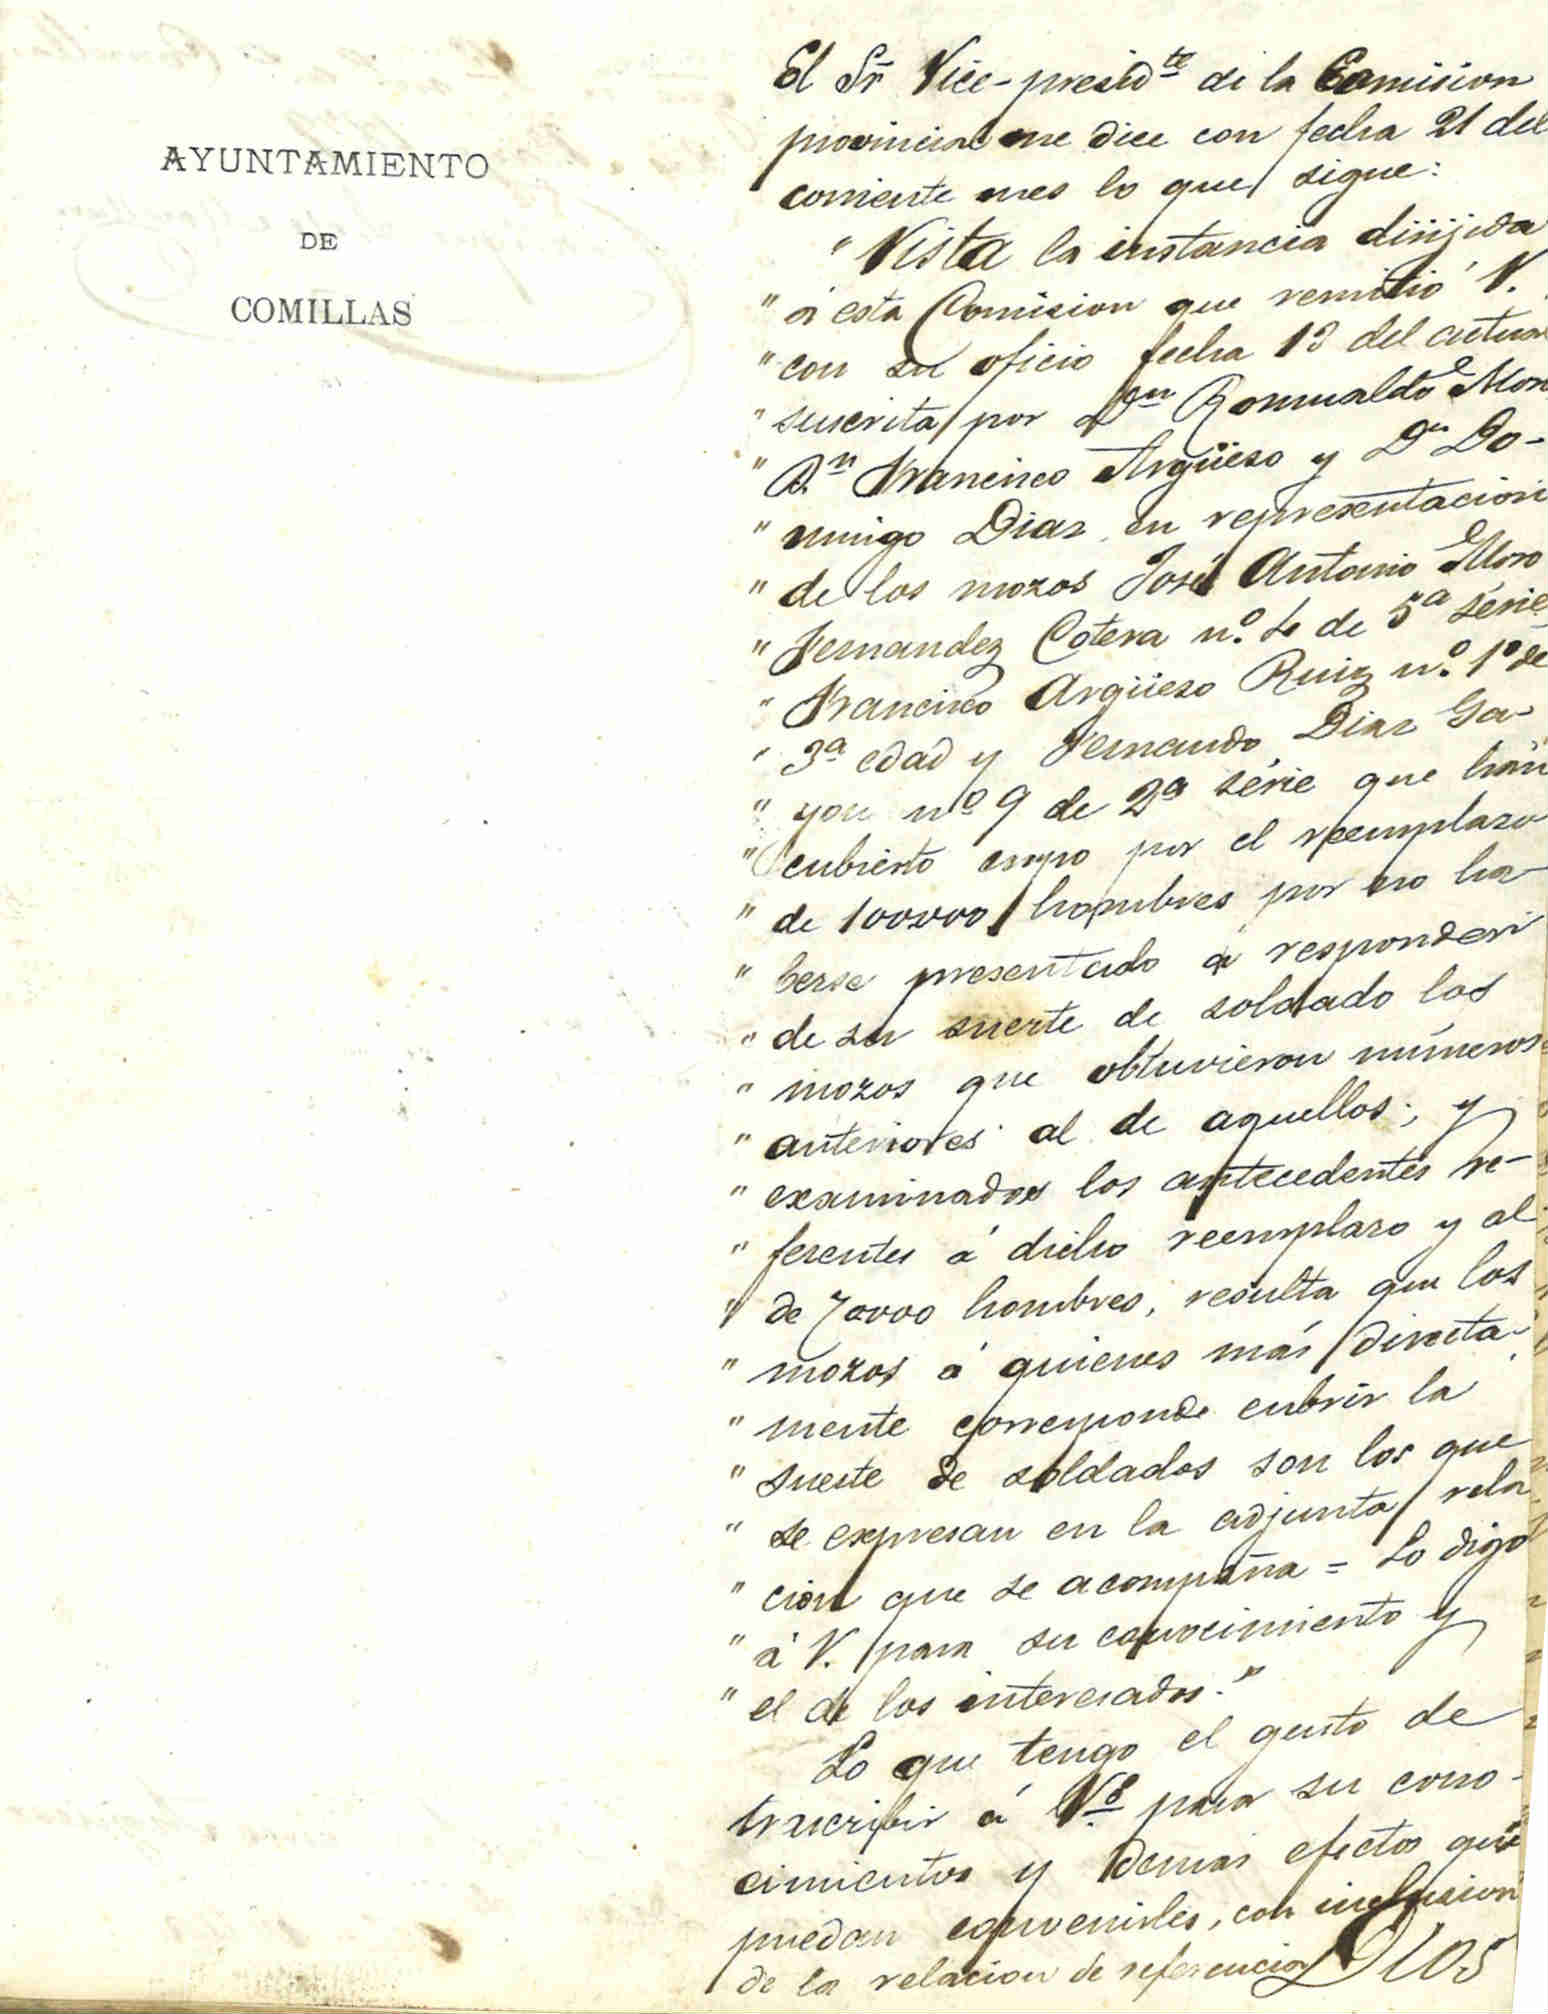 AYUNTAMIENTO
DE
COMILLAS
El Sr Vice-presidte de la Comision
provincial me dice con fecha 21 del
corriente mes lo que sigue:
" Vista la instancia dirijida
" á esta Comision que remitió V.
" con su oficio fecha 13 del actual
" suscrita por Dn Romualdo Moro
" Dn Francisco Argüeso y Dn Do-
" mingo Diaz en representacion
" de los mozos José Antonio Moro
" Fernandez Cotera nº. 4 de 5ª série
" Francisco Argüeso Ruiz nº. 1º de
" 3ª edad y Fernando Diaz Ga-
" yon nº 9 de 2ª série que han
" cubierto cupo por el reemplazo
" de 100000 hombres por no ha-
" berse presentado á responder
" de su suerte de soldado los
" mozos que obtuvieron números
" anteriores al de aquellos; y
" examinados los antecedentes re-
" ferentes á dicho reemplazo y al
" de 70000 hombres, resulta que los
" mozos á quienes más directa-
" mente corresponde cubrir la
" suerte de soldados son los que
" se expresan en la adjunta rela
" cion que se acompaña = Lo digo
" á V. para su conocimiento y
" el de los interesados."
Lo que tengo el gusto de
trascribir á Vs para su cono-
cimientos y demas efectos que
puedan convenirles, con inclusion
de la relacion de referencia Dios